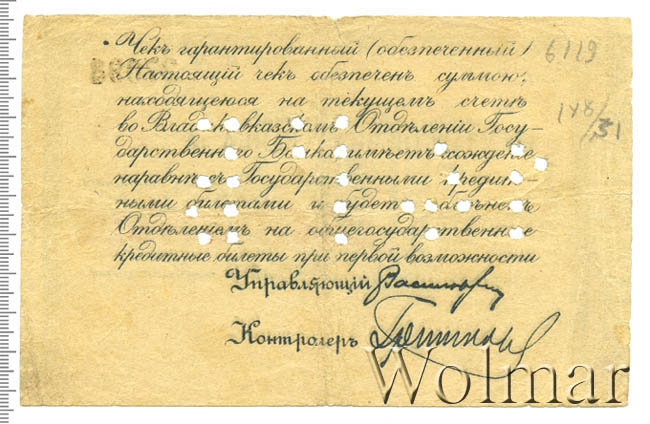 Чекъ гарантированный (обезпеченный)
Настоящій чек обезпечен суммою,
находящеюся на текущем счетѣ
во Владикавказском Отдѣленіи Госу-
дарственного Банка имѣетъ хожденіе
наравнѣ съ Государственными кредит-
ными билетами и будет обмѣнен
Отдѣленіем на общегосударственные
кредитные билеты при первой возможности
Управляющій
Контролеръ
6119
148/
Wolmar